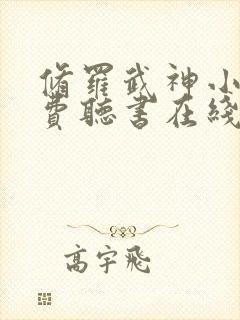 脩羅武神小
費聽書在綫
高宇飛